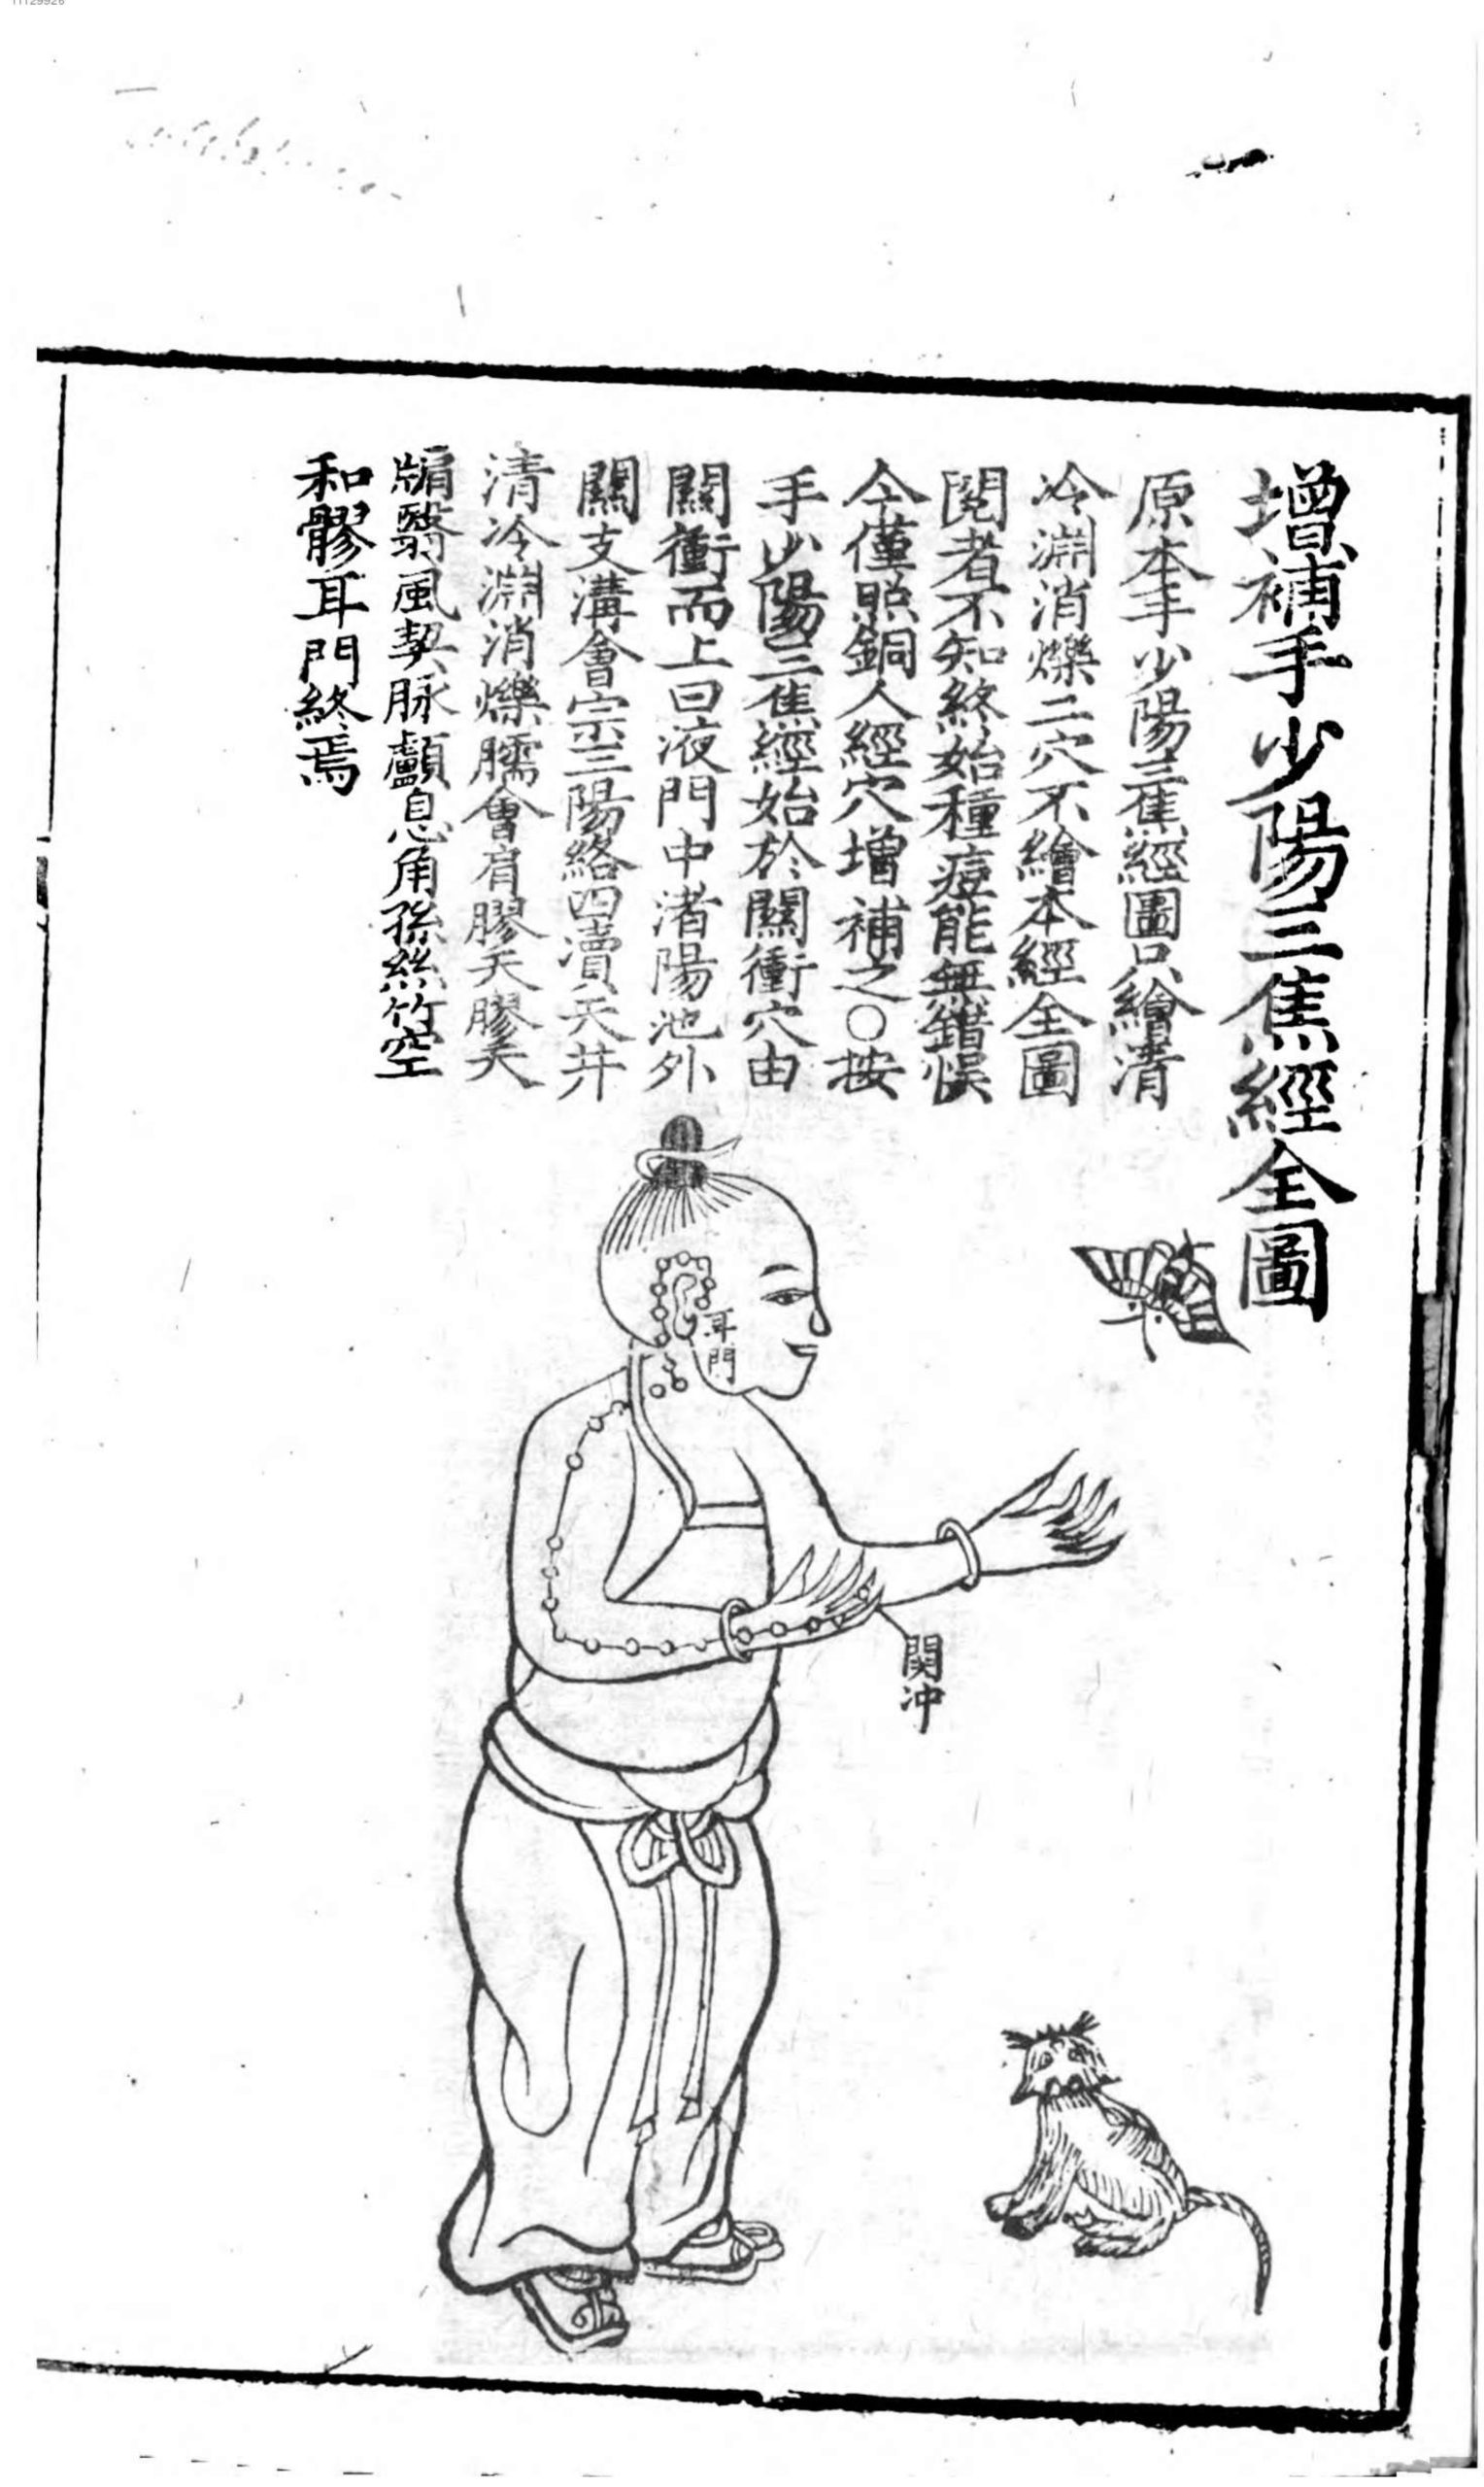 增補手少陽三焦經全圖
原本手少陽三焦經圖只繪清
冷淵消爍二穴不繪本經全圖
閱者不知終始種痘能無錯悞
今僅照銅人經穴增補之○按
手少陽三焦經始於關衝穴由
關衝而上曰液門中渚陽池外
關支溝會宗三陽絡四瀆天井
清冷淵消爍臑會肩膠天膠天
牖翳風契脉顱息角孫絲竹空
和髎耳門終焉
耳門
関冲